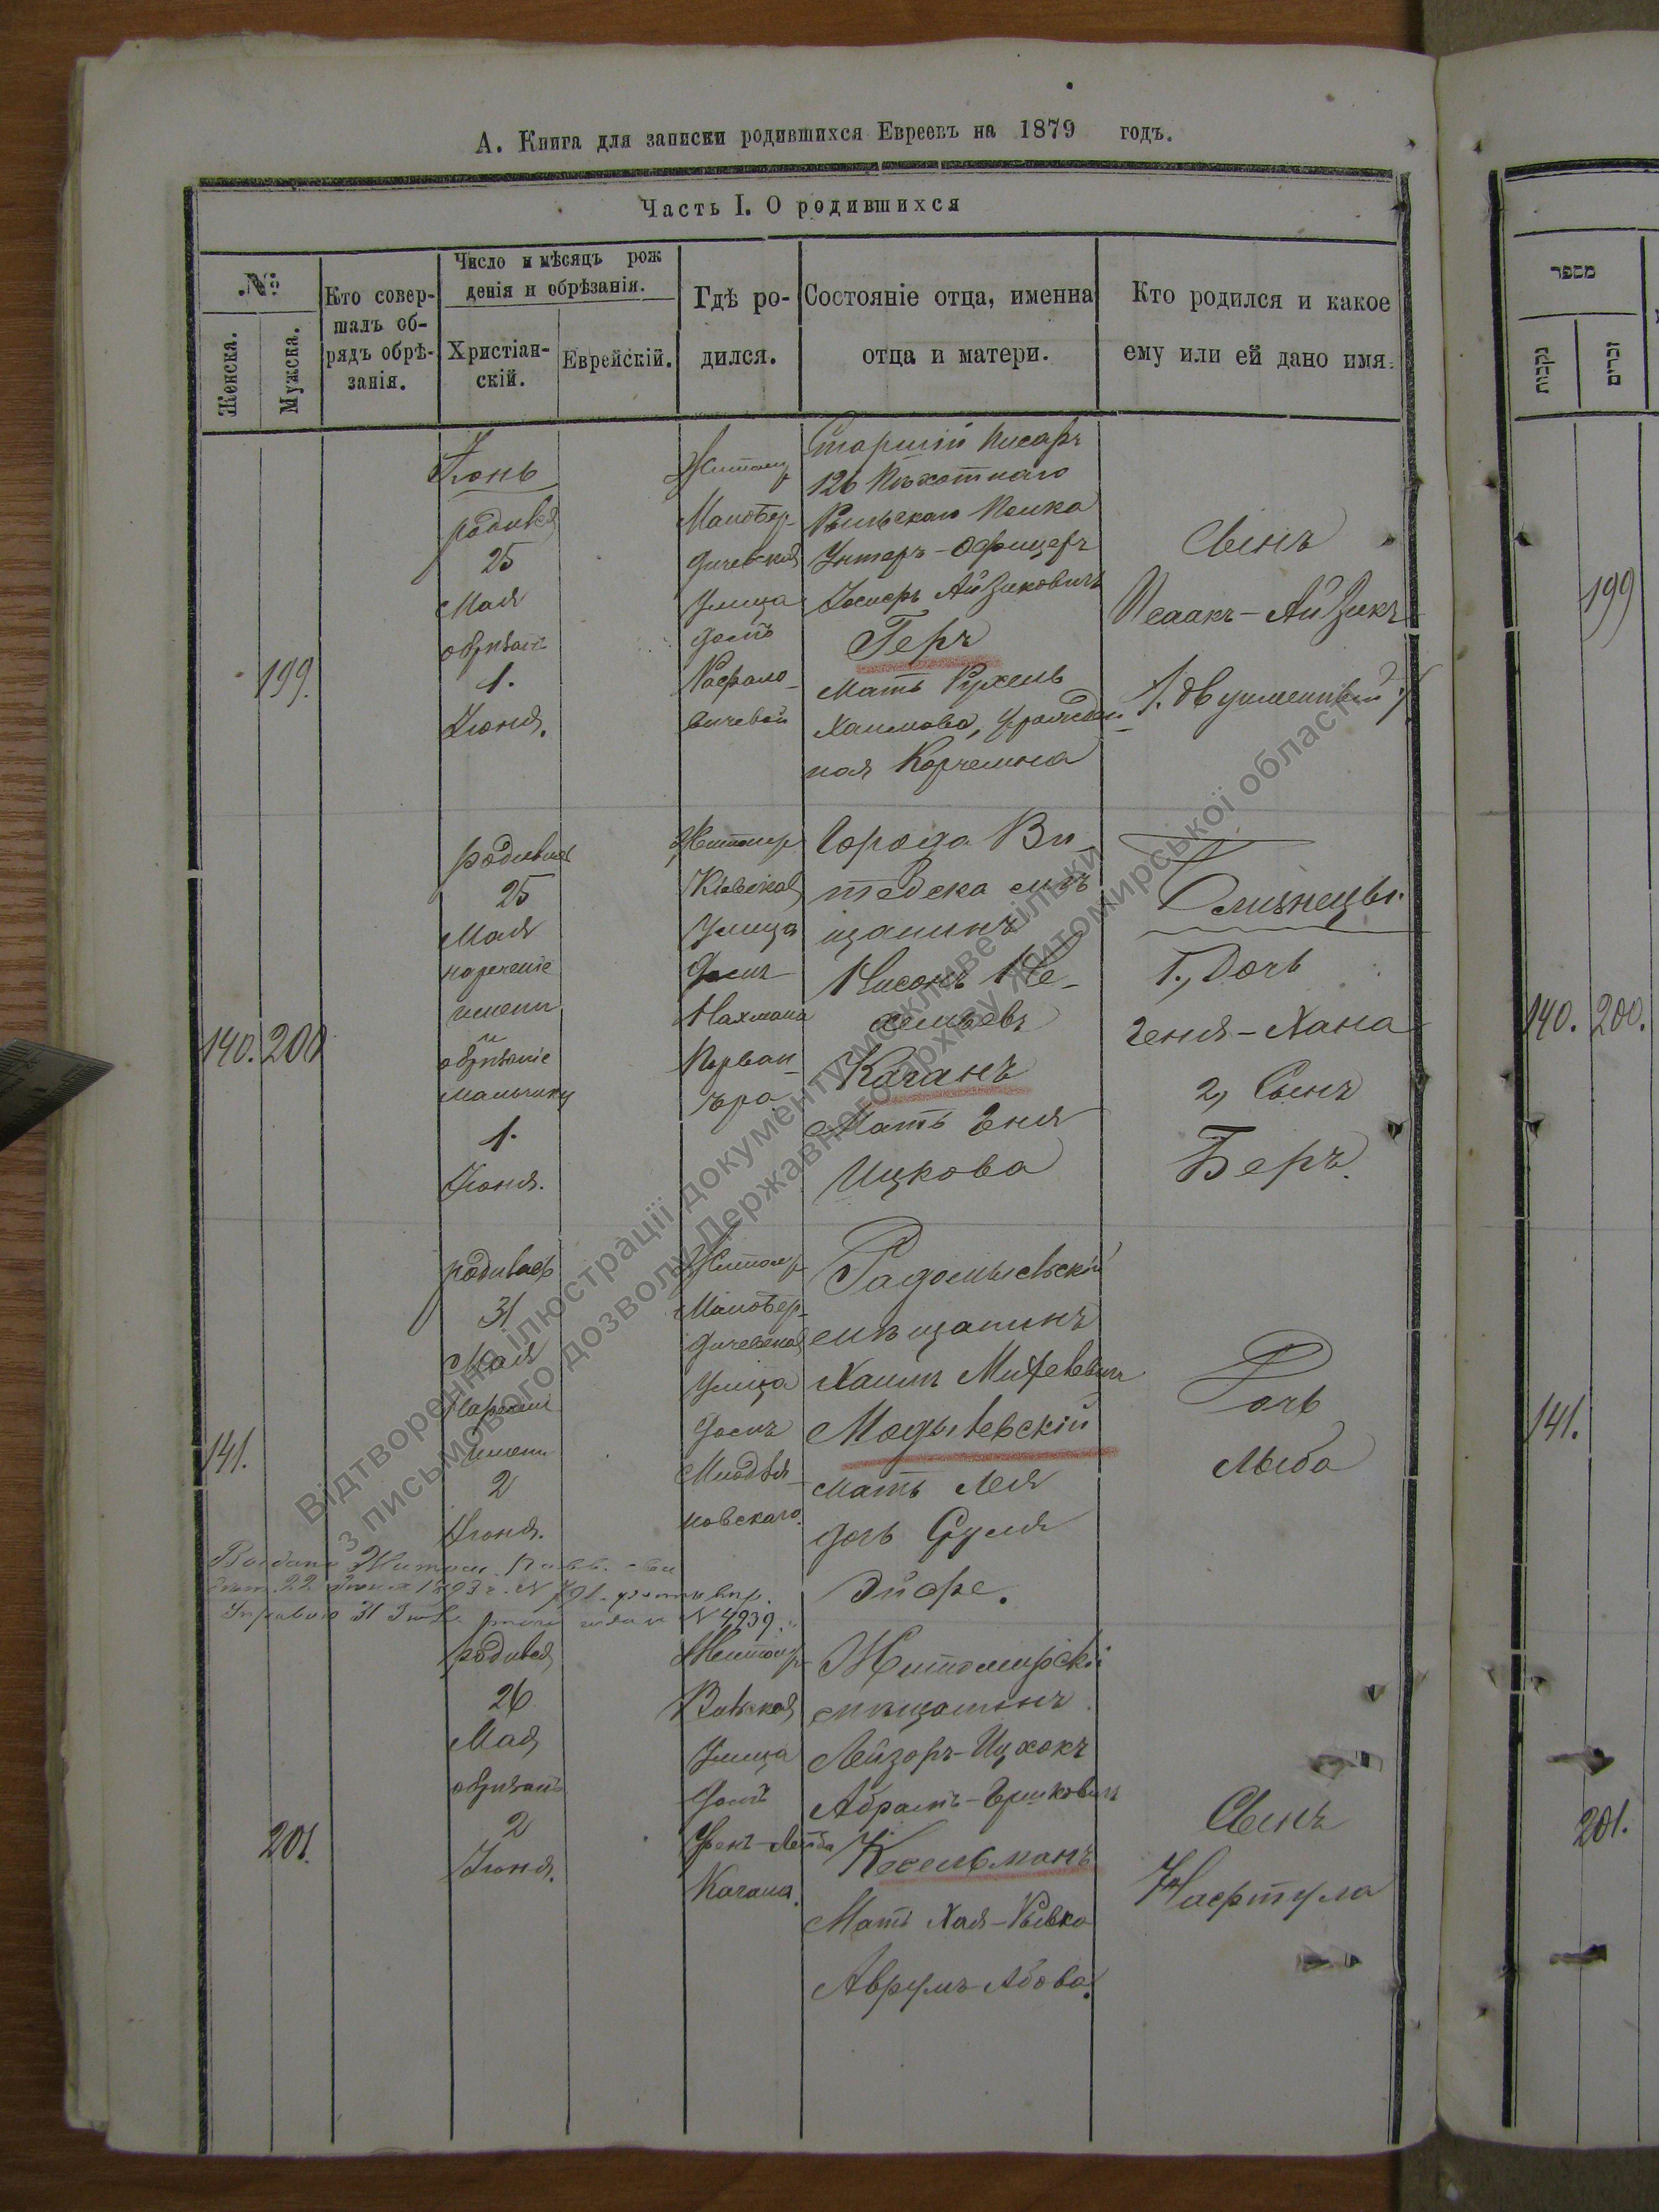 А. Книга для записки родившихся Евреевъ на 1879 годъ.
Часть I. О родившихся
№
Женска.
Мужска.
Кто совер-
шалъ об-
рядъ обрѣ-
занія.
Число и мѣсяцъ рож
денія и обрѣзанія.
Христіан-
скій.
Еврейскій.
Гдѣ ро-
дился.
Состояніе отца, именна
отца и матери.
Кто родился и какое
ему или ей дано имя.
199.
Іюнь
родился
25
Мая
обрѣзанъ
1.
Іюня.
Житомир
Малобер-
дичевская
улица
домъ
Рафало-
вичевой
Старшій писарь
126 Пѣхотнаго
Рыльскаго Полка
Унтеръ-Офицеръ
Іосифъ Айзиковичъ
Геръ
Мать Рухель
Хаимова, урожден-
ная Корчемна
Сынъ
Исаакъ-Айзикъ
/. двуименный /.
140. 200
родились
25
Мая
нареченіе
имени
и
обрѣзаніе
мальчику
1.
Іюня.
Житомир
Кіевская
улица
домъ
Нахмана
Города Ви-
тебска мѣ
щанинъ
Нисонъ
Каганъ
Мать Эня
Ицкова
Близнецы.
1., Дочь
Геня-Хана
2, Сынъ
Беръ.
141.
родилась
31
Мая
наречені
имени
2
Іюня.
Житомир
Малобер-
дичевская
улица
домъ
новскаго.
Радомысльскій
мѣщанинъ
Хаимъ
Модылевскій
мать Лея
дочь Сруля
Эйфе.
Дочь
Лыба
22 1893 г. № 791.
31 № 4939.
201.
родился
26
Мая
обрѣзанъ
2
Іюня.
Житомир
Вильская
улица
домъ
Кагана.
Житомирскій
мѣщанинъ
Лейзоръ-Ицхокъ
Абрамъ-Гершковичъ
Кесельманъ
Мать Хая-Рывка
Аврумъ-Абова.
Сынъ
Нафтула
מספר
נקבות
זכרים
199
140. 200.
141.
201.
Відтворення ілюстрації документу можливе тільки
з письмового дозволу Державного архіву Житомирської області